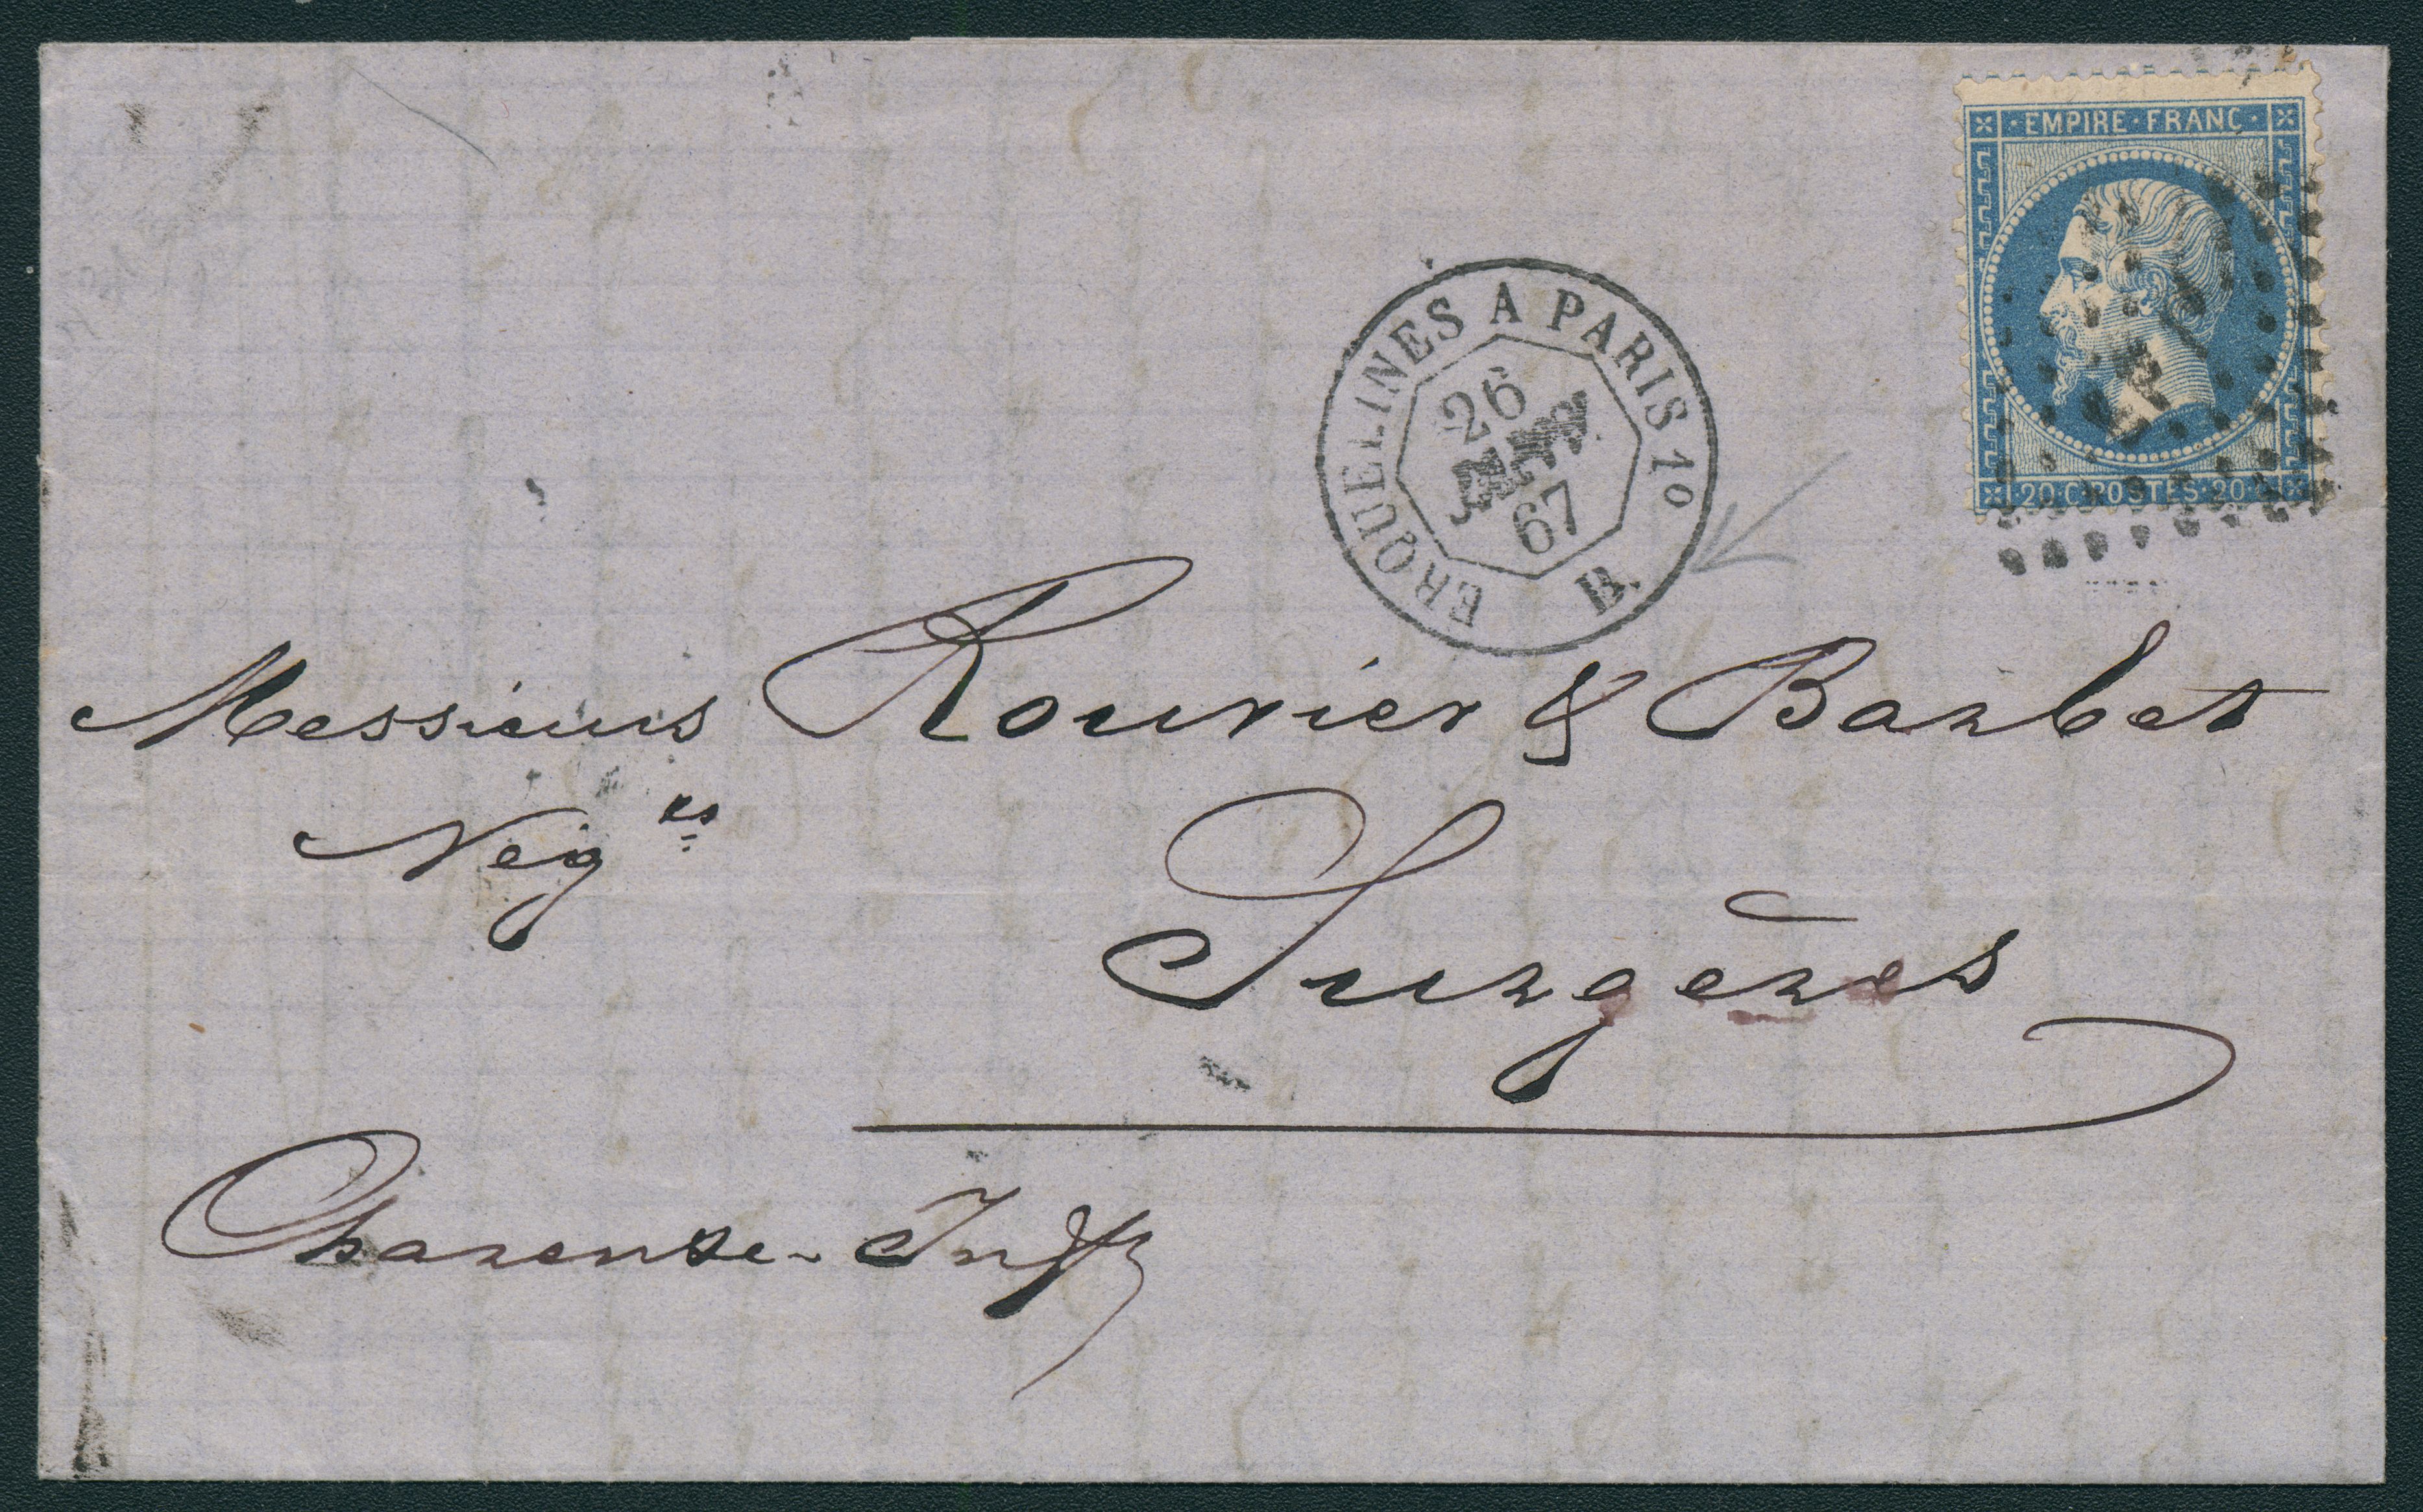 EMPIRE · FRANC
20 · C · POSTES · 20 · C
ERQUELINES A PARIS 10
26
67
B.
Messieurs Rouvier & Barbet
Nég ts
Surgères
Charente-Infre